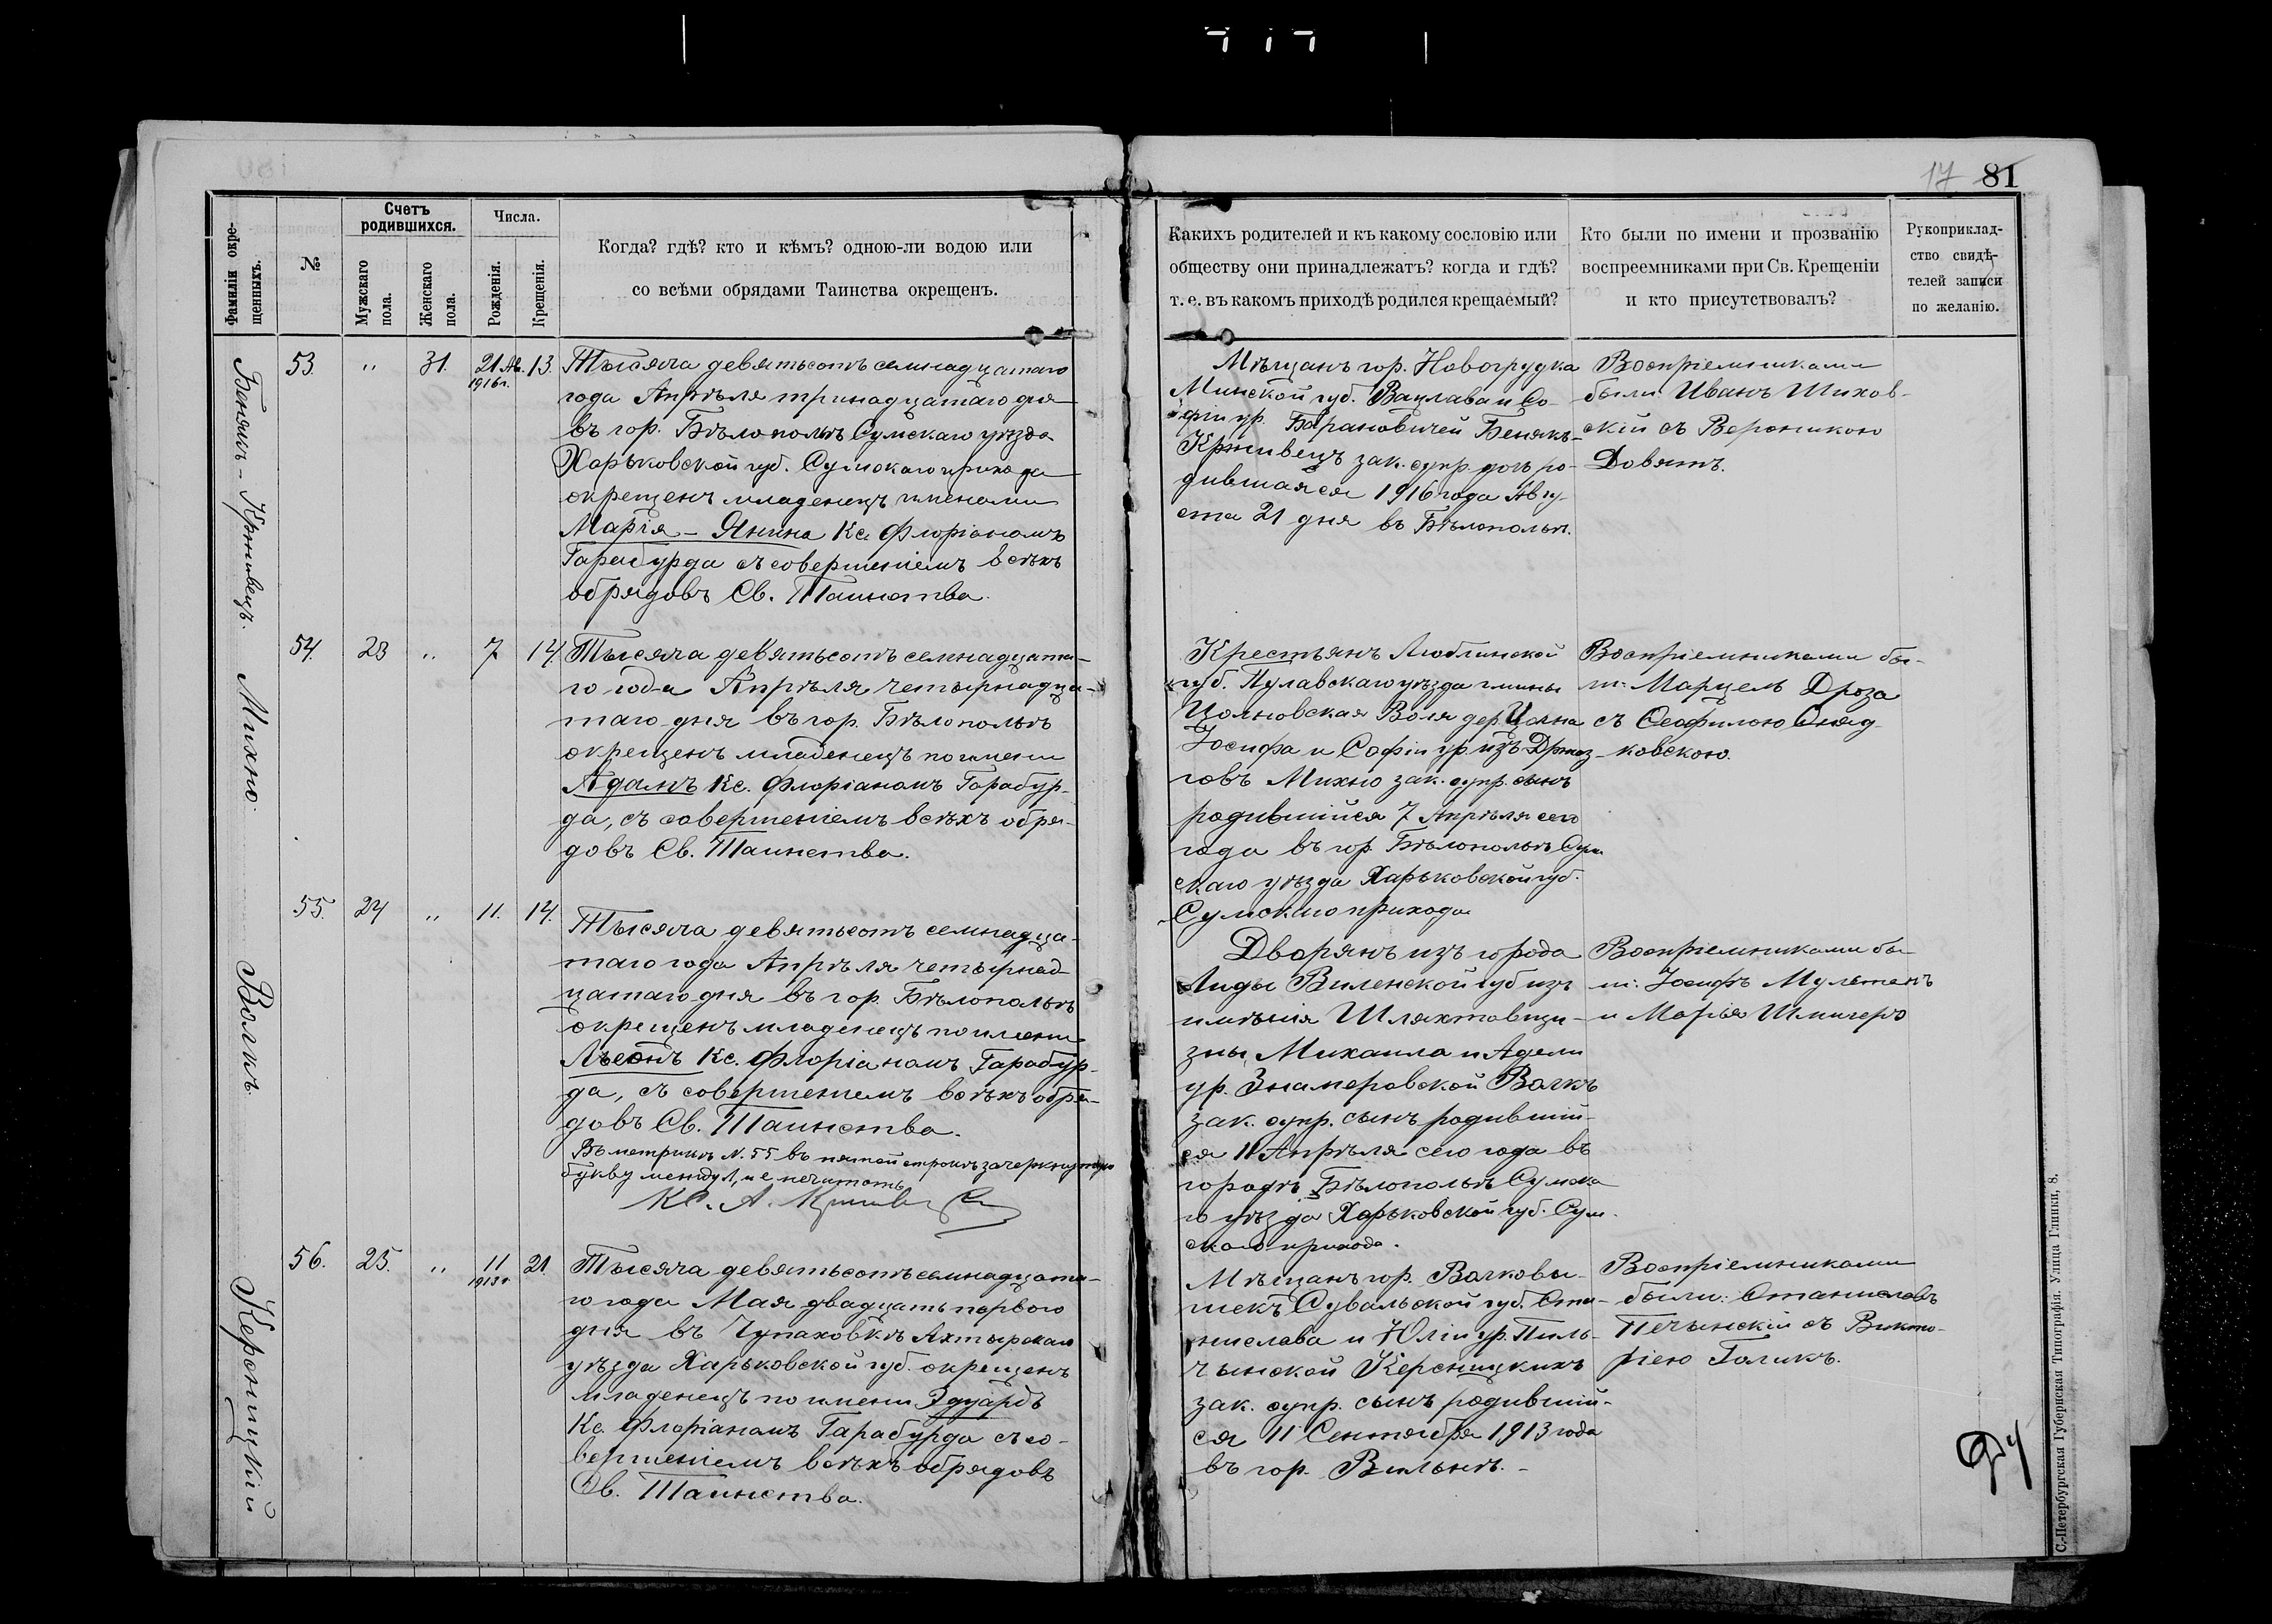 17 81
Фамиліи окре-
щенныхъ.
№
Счетъ
родившихся.
Мужскаго
пола.
Женскаго
пола.
Числа.
Рожденія.
Крещенія.
Когда? гдѣ? кто и кѣмъ? одною-ли водою или
со всѣми обрядами Таинства окрещенъ.
Какихъ родителей и къ какому сословію или
обществу они принадлежатъ? когда и гдѣ?
т. е. въ какомъ приходѣ родился крещаемый?
Кто были по имени и прозванію
воспреемниками при Св. Крещеніи
и кто присутствовалъ?
Рукоприклад-
ство свидѣ-
телей записи
по желанію.
Бенякъ-Крживецъ.
53. " 31. 21 Ав. 13.
1916 г.
Тысяча девятьсотъ семнадцатаго
года Апрѣля тринадцатаго дня
въ гор. Бѣлопольѣ Сумскаго уѣзда
Харьковской губ. Сумскаго прихода
окрещенъ младенецъ именами
Марія-Янина Кс. Флоріаномъ
Гарабурда съ совершеніемъ всѣхъ
обрядовъ Св. Таинства.
Мѣщанъ гор. Новогрудка
Минской губ. Вацлава и Со-
фіи ур. Барановичей Бенякъ-
Крживецъ зак. супр. дочь ро-
дившаяся 1916 года Авгу-
ста 21 дня въ Бѣлопольѣ.
Воспріемниками
были: Иванъ Шихов-
скій съ Вероникою
Довятъ.
Михно.
54. 23 " 7 14.
Тысяча девятьсотъ семнадцата-
го года Апрѣля четырнадца-
таго дня въ гор. Бѣлопольѣ
окрещенъ младенецъ по имени
Адамъ Кс. Флоріаномъ Гарабур-
да, съ совершеніемъ всѣхъ обря-
довъ Св. Таинства.
Крестьянъ Люблинской
губ. Пулавскаго уѣзда гмины
Воля дер.
Іосифа и Софіи ур. изъ
говъ Михно зак. супр. сынъ
родившійся 7 Апрѣля сего
года въ гор. Бѣлопольѣ Сум
скаго уѣзда Харьковской губ.
Сумскаго прихода
Воспріемниками бы-
ли: Марцель Дроза
съ Ѳеофилою
ковскою.
Волкъ.
55. 24 " 11. 14.
Тысяча девятьсотъ семнадца-
таго года Апрѣля четырнад-
цатаго дня въ гор. Бѣлопольѣ
окрещенъ младенецъ по имени
Льеонъ Кс. Флоріаномъ Гарабур-
да, съ совершеніемъ всѣхъ обря-
довъ Св. Таинства.
Въ метрикѣ N. 55 въ пятой строкѣ зачеркнутую
букву между Л, и е не читать
Кс. А.
Дворянъ изъ города
Лиды Виленской губ изъ
имѣнія Шляхтовщи-
зны, Михаила и Адели
ур. Знамеровской Волкъ
зак. супр. сынъ родившій-
ся 11 Апрѣля сего года въ
городѣ Бѣлопольѣ Сумска
го уѣзда Харьковской губ. Сум-
скаго прихода.
Воспріемниками бы-
ли: Іосифъ
и Марія
Керсницкій
56. 25. " 11 21.
1913 г.
Тысяча девятьсотъ семнадцата-
го года Мая двадцать перваго
дня въ Чупаховкѣ Ахтырскаго
уѣзда Харьковской губ. окрещенъ
младенецъ по имени Эдуардъ
Кс. Флоріаномъ Гарабурда съ со-
вершеніемъ всѣхъ обрядовъ
Св. Таинства.
Мѣщанъ гор. Волковы-
шекъ Сувальской губ. Ста-
нислава и Юліи ур. Пиль-
чынской Керсницкихъ
зак. супр. сынъ родившій-
ся 11 Сентября 1913 года
въ гор. Вильнѣ.-
Воспріемниками
были: Станиславъ
Печынскій съ Викто-
ріею Голикъ.
С.-Петербургская Губернская Типографія. Улица Глинки, 8.